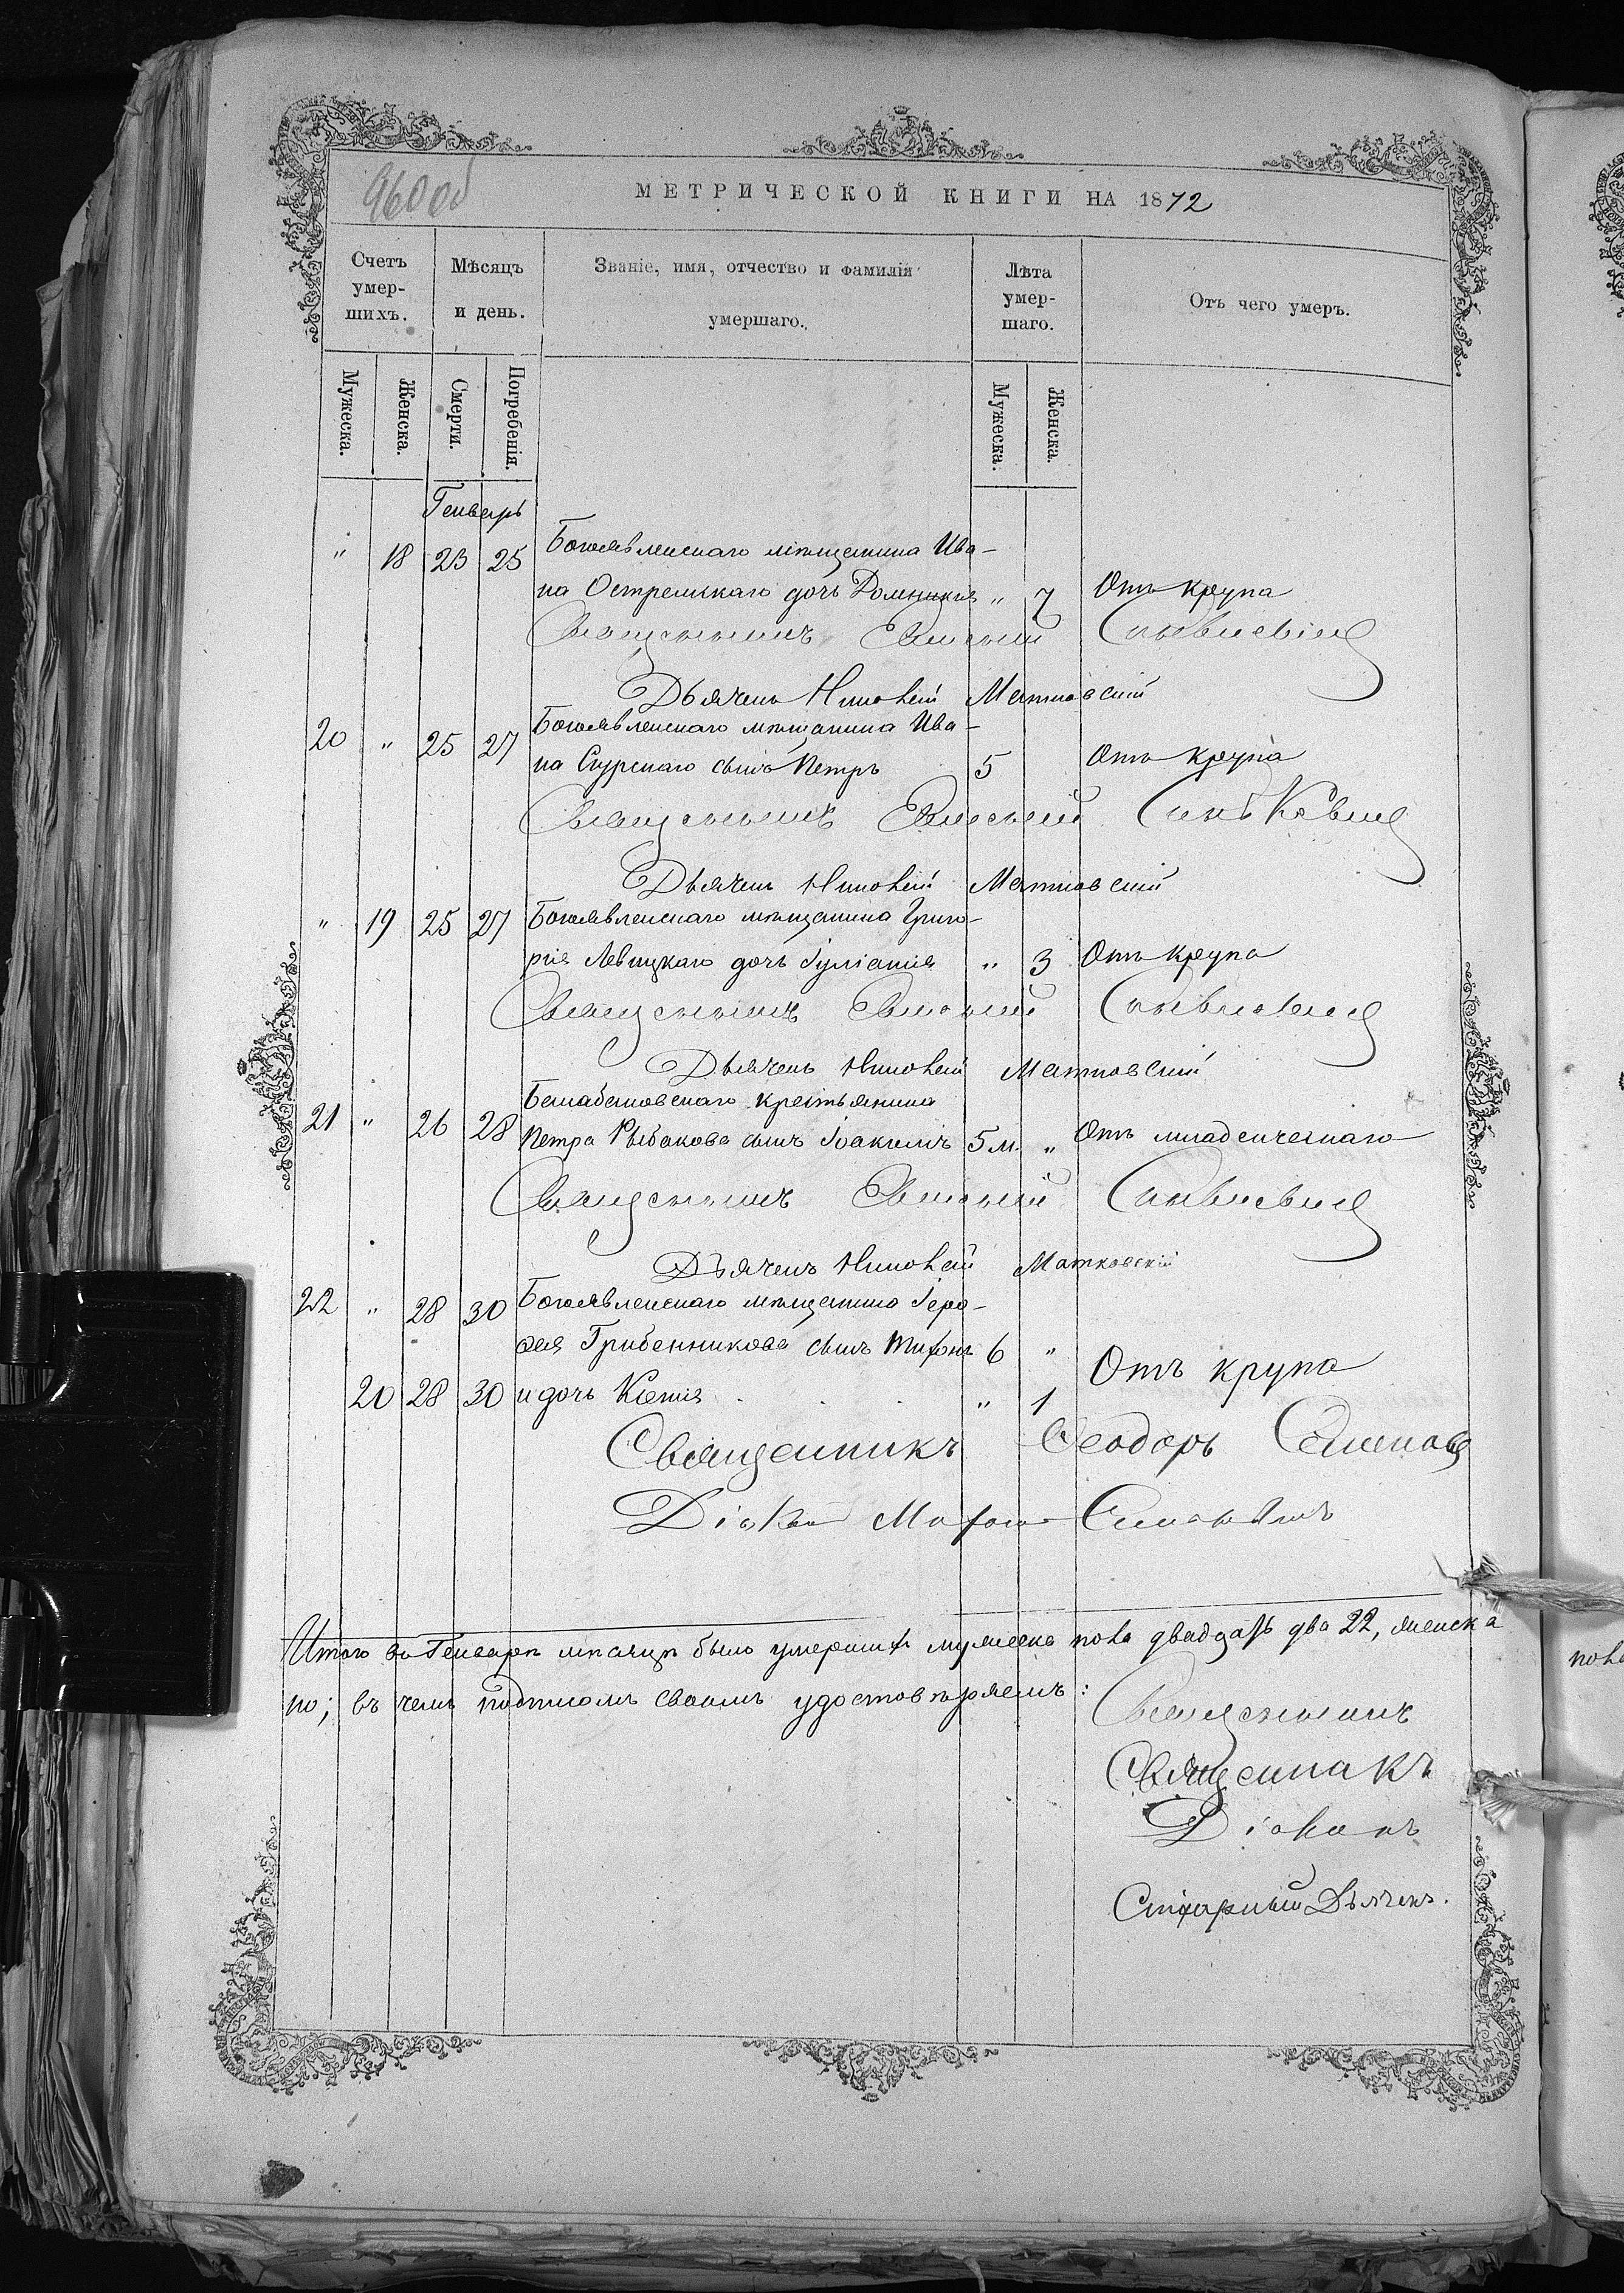 960 об
МЕТРИЧЕСКОЙ КНИГИ НА 1872
Счетъ умер-шихъ. Мѣсяцъ и день. Званіе, имя, отчество и фамилія умершаго. Лѣта умер-шаго. Отъ чего умеръ.
Мужеска. Женска. Смерти. Погребенія. Мужеска. Женска.
Генварь
" 18 23 25 Богоявленскаго мѣщанина Ива-
на Острельскаго дочь Домникія " 7 Отъ крупа
Священникъ Евгеній Синькевичъ
Дьячекъ Матковскій
20 " 25 27 Богоявленскаго мѣщанина Ива-
на Скурскаго сынъ Петръ 5 Отъ крупа
Священникъ Евгеній Синькевичъ
Дьячекъ Матковскій
" 19 25 27 Богоявленскаго мѣщанина Григо-
рія Левицкаго дочь Іуліанія " 3 Отъ крупа
Священникъ Евгеній Синькевичъ
Дьячекъ Матковскій
21 " 26 28 крестьянина
Петра Рыбакова сынъ Іоакимъ 5 м. " Отъ младенческаго
Священникъ Евгеній Синькевичъ
Дьячекъ Матковскій
22 " 28 30 Богоявленскаго мѣщанина Іеро-
фея Грибенникова сынъ Тихонъ 6 "
20 28 30 и дочь Ксенія " 1 Отъ крупа
Священникъ Ѳеодоръ
Діаконъ
Итого въ Генварѣ мѣсяцѣ было умершихъ мужеска пола двадцать два 22, женска
по; въ чемъ подписомъ своимъ удостовѣряемъ:
Священникъ
Священникъ
Діаконъ
Дьячекъ.
пола